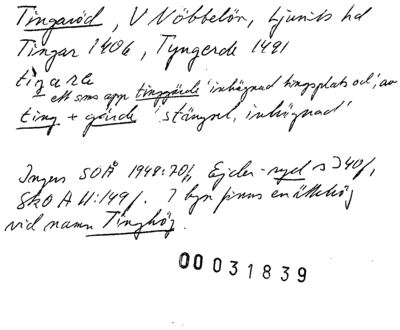 Tingaröd, V Nöbbelöv, Ljunits hd
Tingar 1406, Tyngerde 1491
ett sms app tinggärde 'inhägnad tingsplats od', av
ting + gärde 'stängsel, inhägnad'
Ingers SOÅ 1948:70f, Ejder-ryd s 340f,
SkO A 11:149f. I byn finns en ättehög
vid namn Tinghög.
00031839